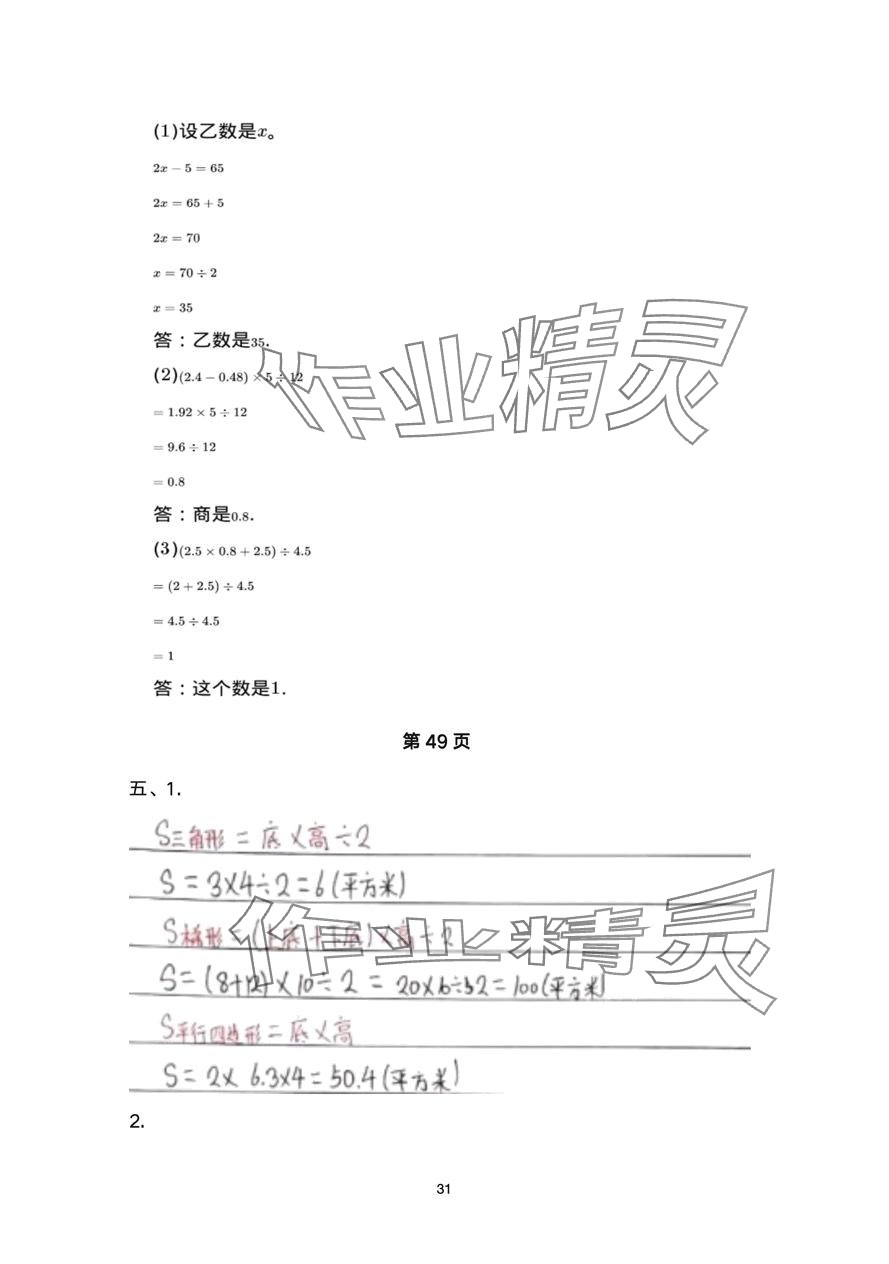 (1)设乙数是x。
2x − 5 = 65
2x = 65 + 5
2x = 70
x = 70 ÷ 2
x = 35
答：乙数是35.
(2)(2.4 − 0.48) × 5 ÷ 12
= 1.92 × 5 ÷ 12
= 9.6 ÷ 12
= 0.8
答：商是0.8.
(3)(2.5 × 0.8 + 2.5) ÷ 4.5
= (2 + 2.5) ÷ 4.5
= 4.5 ÷ 4.5
= 1
答：这个数是1.
作业精灵
第 49 页
五、1.
S三角形 = 底×高÷2
S = 3×4÷2 = 6 (平方米)
S梯形 = (上底+下底)×高÷2
S = (8+12)×10÷2 = 20×10÷2 = 100 (平方米)
S平行四边形 = 底×高
S = 2× 6.3×4 = 50.4 (平方米)
作业精灵
2.
31